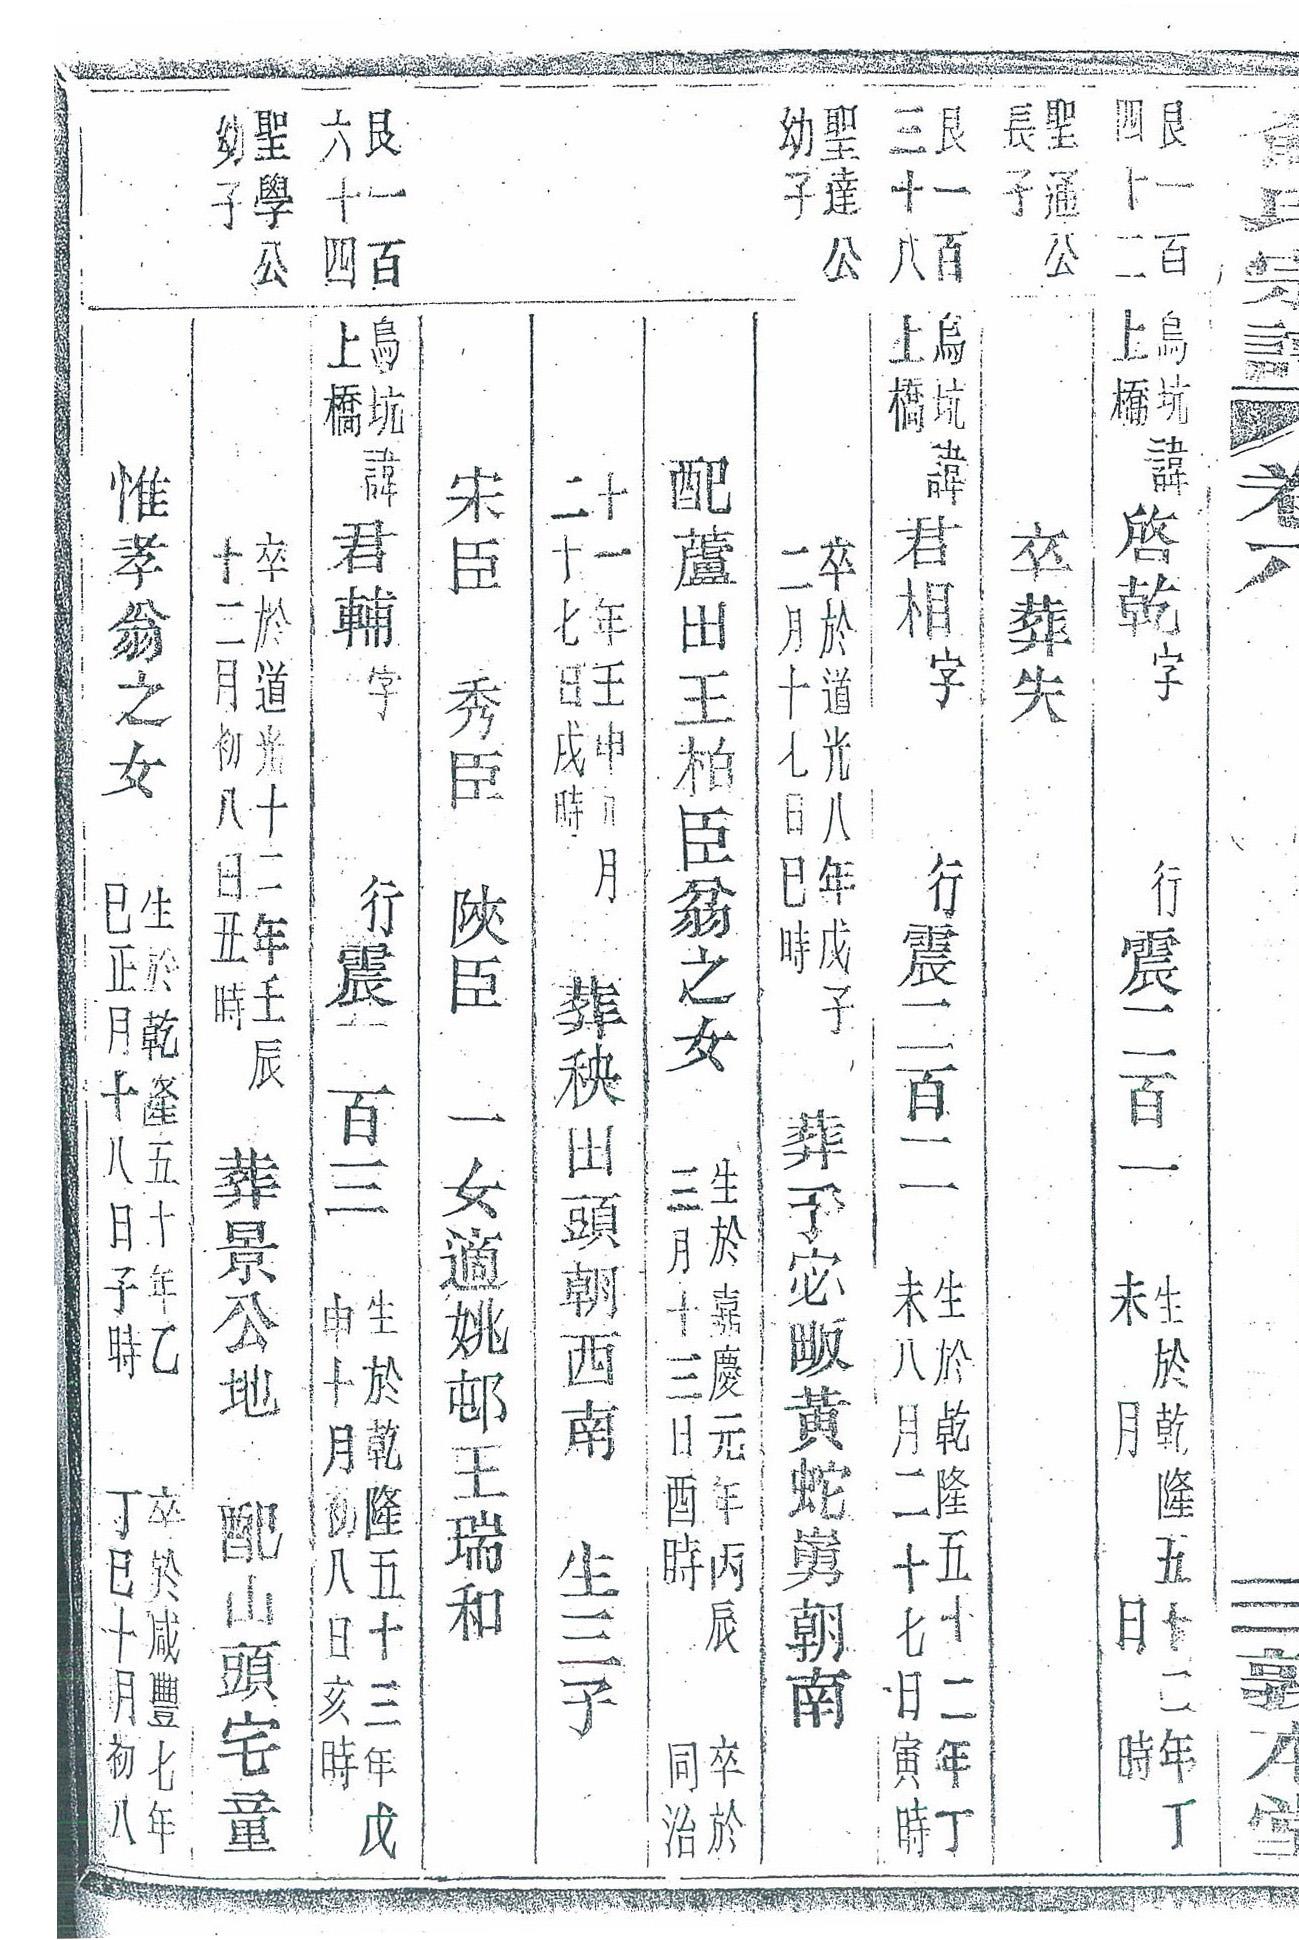 氏宗譜 卷六 三 敦本堂
艮一百
四十二
烏坑
上橋
諱啓乾字 行震二百一 生於乾隆五十二年丁
未 月 日 時
聖通公
長子
卒葬失
艮一百
三十八
烏坑
上橋
諱君相字 行震二百二 生於乾隆五十二年丁
未八月二十七日寅時
聖達公
幼子
卒於道光八年戊子
二月十七日巳時
葬予宓畈黃蛇嶴朝南
配蘆田王柏臣翁之女 生於嘉慶元年丙辰
三月十三日酉時
卒於
同治
十一年壬申 月
二十七日戌時
葬秧田頭朝西南 生三子
宋臣 秀臣 陝臣 一女適姚邨王瑞和
艮一百
六十四
烏坑
上橋
諱君輔字 行震二百三 生於乾隆五十三年戊
申十月初八日亥時
聖學公
幼子
卒於道光十二年壬辰
十二月初八日丑時
葬景公地 配山頭宅童
惟孝翁之女 生於乾隆五十年乙
巳正月十八日子時
卒於咸豐七年
丁巳十月初八